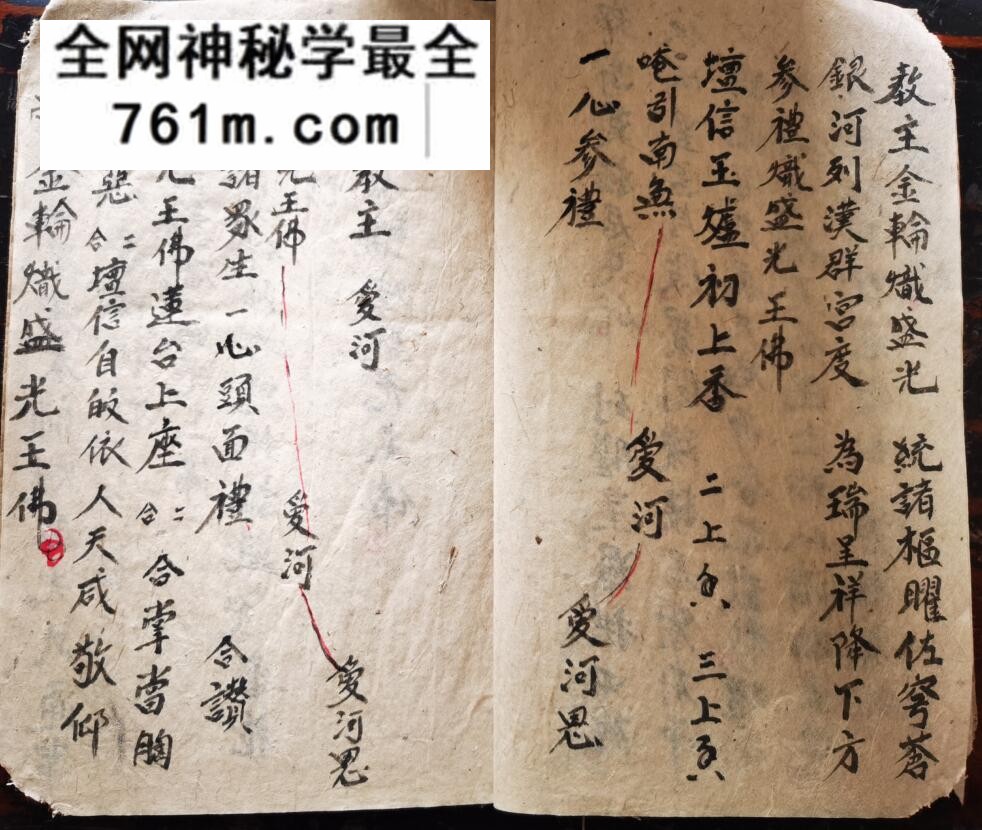 全网神秘学最全
761m.com
教主金輪熾盛光 統諸樞曜佐穹蒼
銀河列漢群宮度 為瑞呈祥降下方
参禮熾盛光王佛
壇信玉爐初上香 二上香 三上香
唵引南無 愛河
一心参禮 愛河思
教主 愛河 愛河思
光王佛 愛河
諸眾生一心頭面禮 合讚
光王佛蓮台上座 合二 合掌當胸
惡 合二 壇信自皈依人天咸敬仰
金輪熾盛光王佛